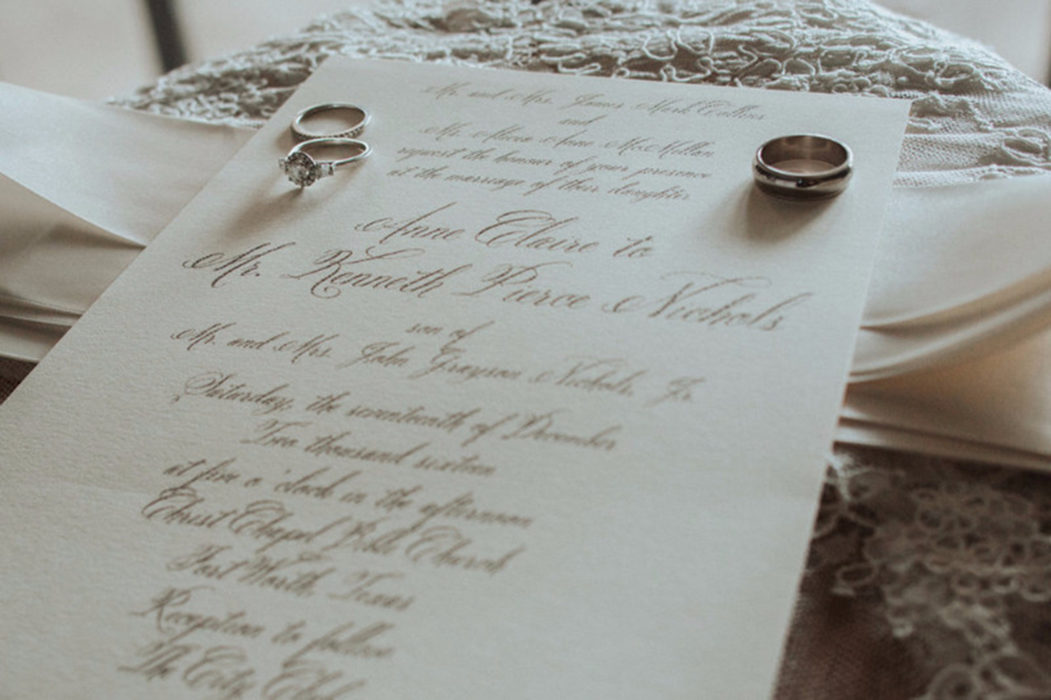 Mr. and Mrs. James Mark Collins
and
Mr. Micae Anne McMillan
request the honour of your presence
at the marriage of their daughter
Anne Claire to
Mr. Kenneth Pierce Nichols
son of
Mr. and Mrs. John Grayson Nichols, Jr.
Saturday, the seventeenth of December
Two thousand sixteen
at five o'clock in the afternoon
Christ Chapel Bible Church
Fort Worth, Texas
Reception to follow
The City Club